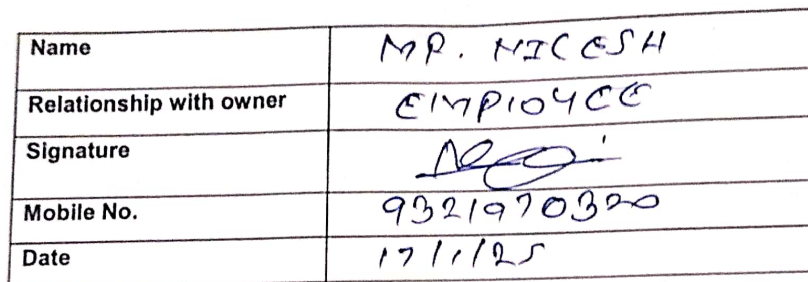 Name MR. NICESH
Relationship with owner EMPLOYEE
Signature
Mobile No. 9321970320
Date 17/1/25